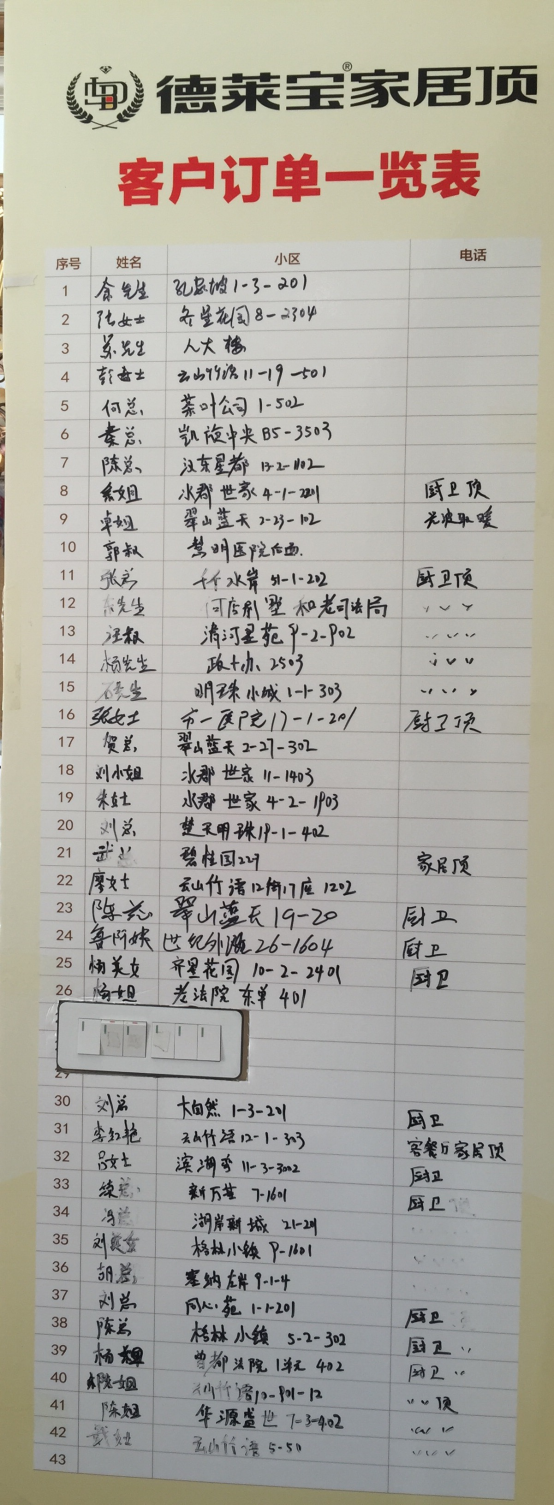 德莱宝®家居顶
客户订单一览表
序号 姓名 小区 电话
1 余先生 孔家坡1-3-201
2 陆女士 齐星花园8-2304
3 苏先生 人大楼
4 彭女士 云山竹语11-19-501
5 何总 茶叶公司1-502
6 袁总 凯旋中央B5-3503
7 陈总 汉东星都 13-2-1102
8 姐 水郡世家4-1-2201 厨卫顶
9 卓姐 翠山蓝天2-23-102 光波取暖
10 郭叔 慧明医院后面
11 张总 千水岸 31-1-202 厨卫顶
12 先生 河店别墅 和老司法局 〃〃〃
13 汪叔 清河星苑9-2-902 〃〃〃
14 杨先生 政十办 2503 〃〃〃
15 石先生 明珠小城1-1-303 〃〃〃
16 张女士 市一医院17-1-201 厨卫顶
17 贺总 翠山蓝天2-27-302
18 刘小姐 水郡世家11-1403
19 朱女士 水郡世家4-2-1903
20 刘总 楚天明珠19-1-402
21 武总 碧桂园227 家居顶
22 廖女士 云山竹语12街17座1202
23 陈总 翠山蓝天19-20 厨卫
24 鲁阿姨 世纪外滩26-1604 厨卫
25 杨美女 齐星花园10-2-2401 厨卫
26 杨姐 老法院 东单401
29
30 刘总 大自然1-3-201 厨卫
31 李红艳 云山竹语12-1-303 客餐厅家居顶
32 吕女士 滨湖 11-3-3002 厨卫
33 总 新万 7-1601 厨卫顶
34 冯总 湖岸新城 21-201
35 刘 格林小镇9-1601
36 胡总 塞纳左岸9-1-4
37 刘总 同心苑1-1-201 厨卫
38 陈总 格林小镇5-2-302 厨卫〃
39 杨辉 曾都法院1单元402 厨卫〃
40 姐 竹语12-901-12 〃〃顶
41 陈姐 华源盛世7-3-402 〃〃
42 戴姐 云山竹语5-50 〃〃〃
43